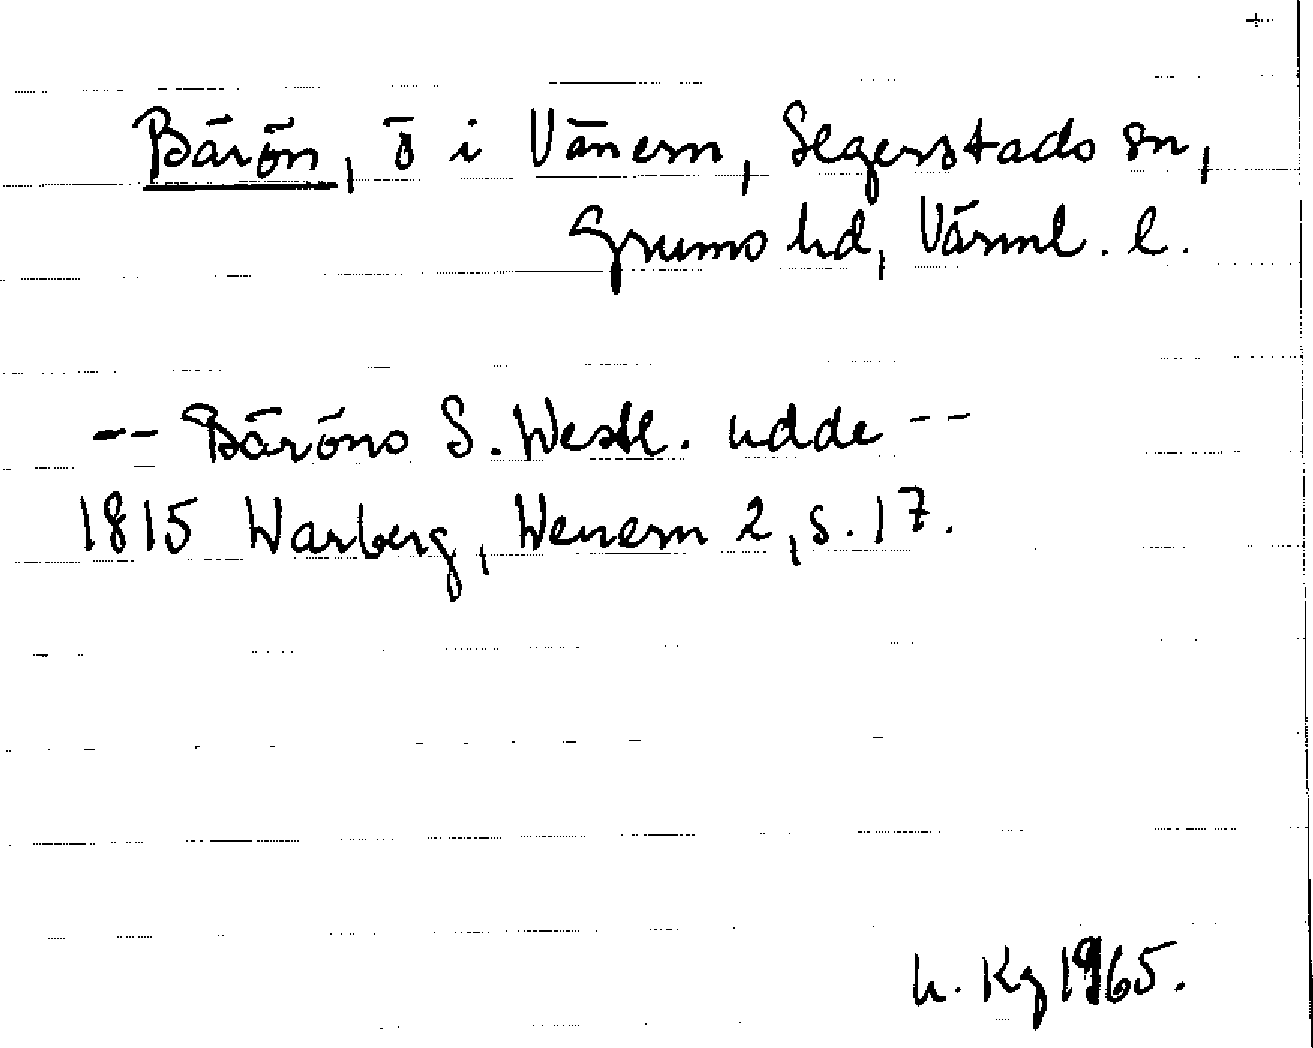 Bärön, ö i Vänern, Segerstads sn,
Grums hd, Värml. l.
-- Bäröns S. Westl. udde --
1815 Warberg, Wenern 2, s. 17.
h. Kg 1965.